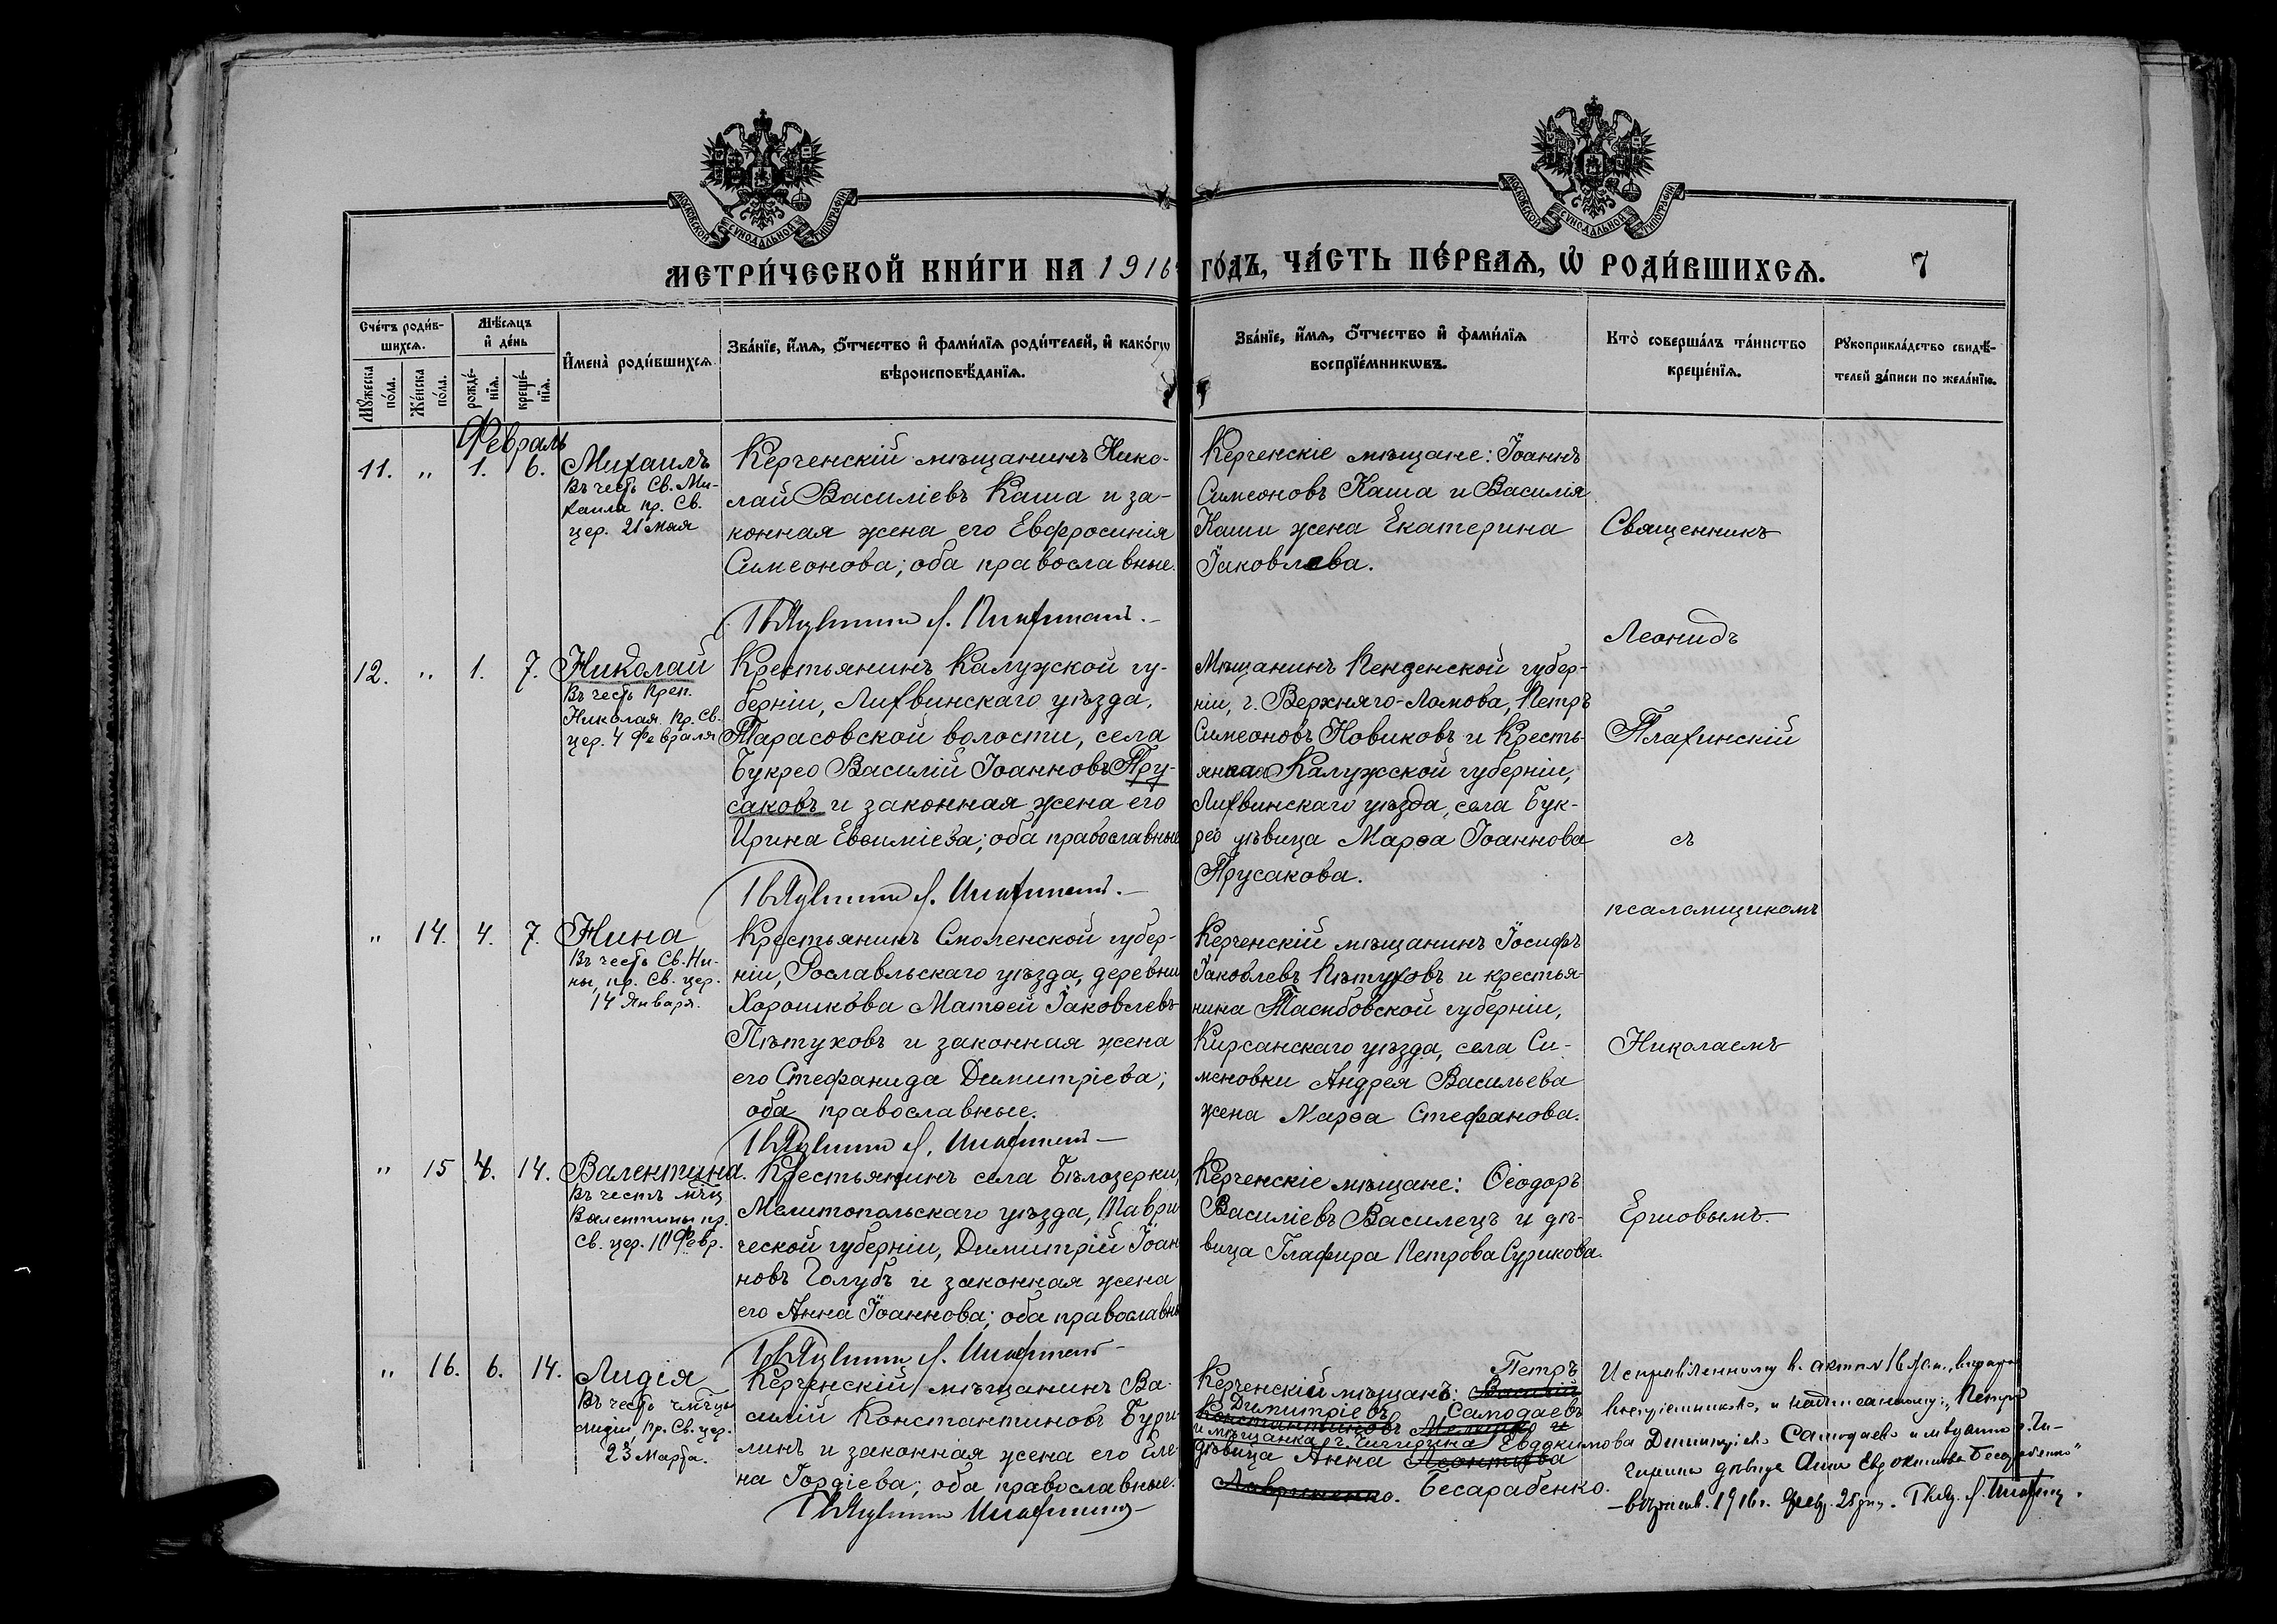 МОСКОВСКОЙ СѴНОДАЛЬНОЙ ТИПОГРАФІИ
МОСКОВСКОЙ СѴНОДАЛЬНОЙ ТИПОГРАФІИ
МЕТРИ́ЧЕСКОЙ КНИ́ГИ НА 1916
ГО́ДЪ, ЧА́СТЬ ПЕ́РВАѦ, Ѡ҆ РОДИ́ВШИХСѦ.
7
Сче́тъ роди́в-
шихсѧ.
Мꙋ́жеска по́ла.
Же́нска по́ла.
Мѣ́сѧцъ
и҆ де́нь
рожде́-
нїѧ.
креще́-
нїѧ.
И҆мена̀ роди́вшихсѧ.
Зва́нїе, и҆́мѧ, ѻ҆́тчество и҆ фами́лїѧ роди́телей, и҆ како́гѡ
вѣроисповѣ́данїѧ.
Зва́нїе, и҆́мѧ, ѻ҆́тчество и҆ фами́лїѧ
воспрїе́мникѡвъ.
Кто̀ соверша́лъ та́инство
креще́нїѧ.
Рꙋкоприкла́дство свидѣ́-
телей за́писи по жела́нїю.
Февраль
11. " 1. 6. Михаилъ
Въ честь Св. Ми-
хаила пр. Св.
цер. 21 Мая
Керченскій мѣщанинъ Нико-
лай Василіевъ Каша и за-
конная жена его Евфросинія
Симеонова; оба православные.
Керченскіе мѣщане: Іоаннъ
Симеоновъ Каша и Василія
Каши жена Екатерина
Іаковлева.
Священникъ
Леонидъ
Плахинскій
съ
псаломщикомъ
Николаемъ
Ершовымъ.
12. " 1. 7. Николай
Въ честь Преп.
Николая пр. Св.
цер. 4 Февраля
Крестьянинъ Калужской гу-
берніи, Лихвинскаго уѣзда,
Тарасовской волости, села
Букрео Василій Іоанновъ Пру-
саковъ и законная жена его
Ирина Евѳиміева; оба православные
Мѣщанинъ Пензенской губер-
ніи, г. Верхняго-Ломова, Петръ
Симеоновъ Новиковъ и Кресть-
янка Калужской губерніи,
Лихвинскаго уѣзда, села Бук-
рео дѣвица Марѳа Іоаннова
Прусакова.
" 14. 4. 7. Нина
Въ честь Св. Ни-
ны, пр. Св. цер.
14 Января.
Крестьянинъ Смоленской губер-
ніи, Рославльскаго уѣзда, деревни
Хорошкова Матѳей Іаковлевъ
Пѣтуховъ и законная жена
его Стефанида Димитріева;
оба православные.
Керченскій мѣщанинъ Іосифъ
Іаковлевъ Пѣтуховъ и крестья-
нина Тамбовской губерніи,
Кирсанскаго уѣзда, села Си-
меновки Андрея Васильева
жена Марѳа Стефанова.
" 15 4. 14. Валентина.
Въ честь мчц
Валентины пр.
Св. цер. 10 Февр.
Крестьянинъ села Бѣлозерки,
Мелитопольскаго уѣзда, Таври
ческой губерніи, Димитрій Іоан
новъ Голубъ и законная жена
его Анна Іоаннова; оба православны
Керченскіе мѣщане: Ѳеодоръ
Василіевъ Василецъ и дѣ-
вица Глафира Петрова Сурикова.
" 16. 6. 14. Лидія
Въ честь мчцы
Лидіи, пр. Св. цер.
23 Марта.
Керченскій мѣщанинъ Ва-
силій Константиновъ Бури-
линъ и законная жена его Еле-
на Гордіева; оба православные.
Петръ
Керченскій мѣщанъ: Василій
Димитріевъ Самодаевъ
Константиновъ
и мѣщанка г. Чигирина Евдокимова
дѣвица Анна Леонтьева
Лавриненко. Бесарабенко.
Исправленному въ актѣ № 16
Димитріевъ Самодаевъ
дѣвица Анна Евдокимова Бесарабенко"
1916 г.